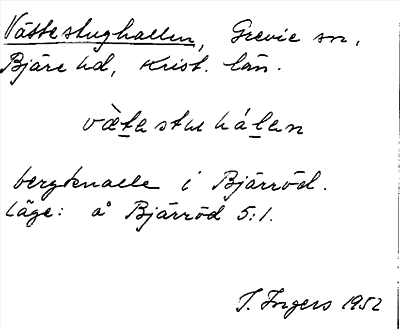 Vättestughallen, Grevie sn,
Bjäre hd, Krist. län.
væ̀ta stu hálan
bergknalle i Bjärröd.
Läge: å Bjärröd 5:1.
I. Ingers 1952